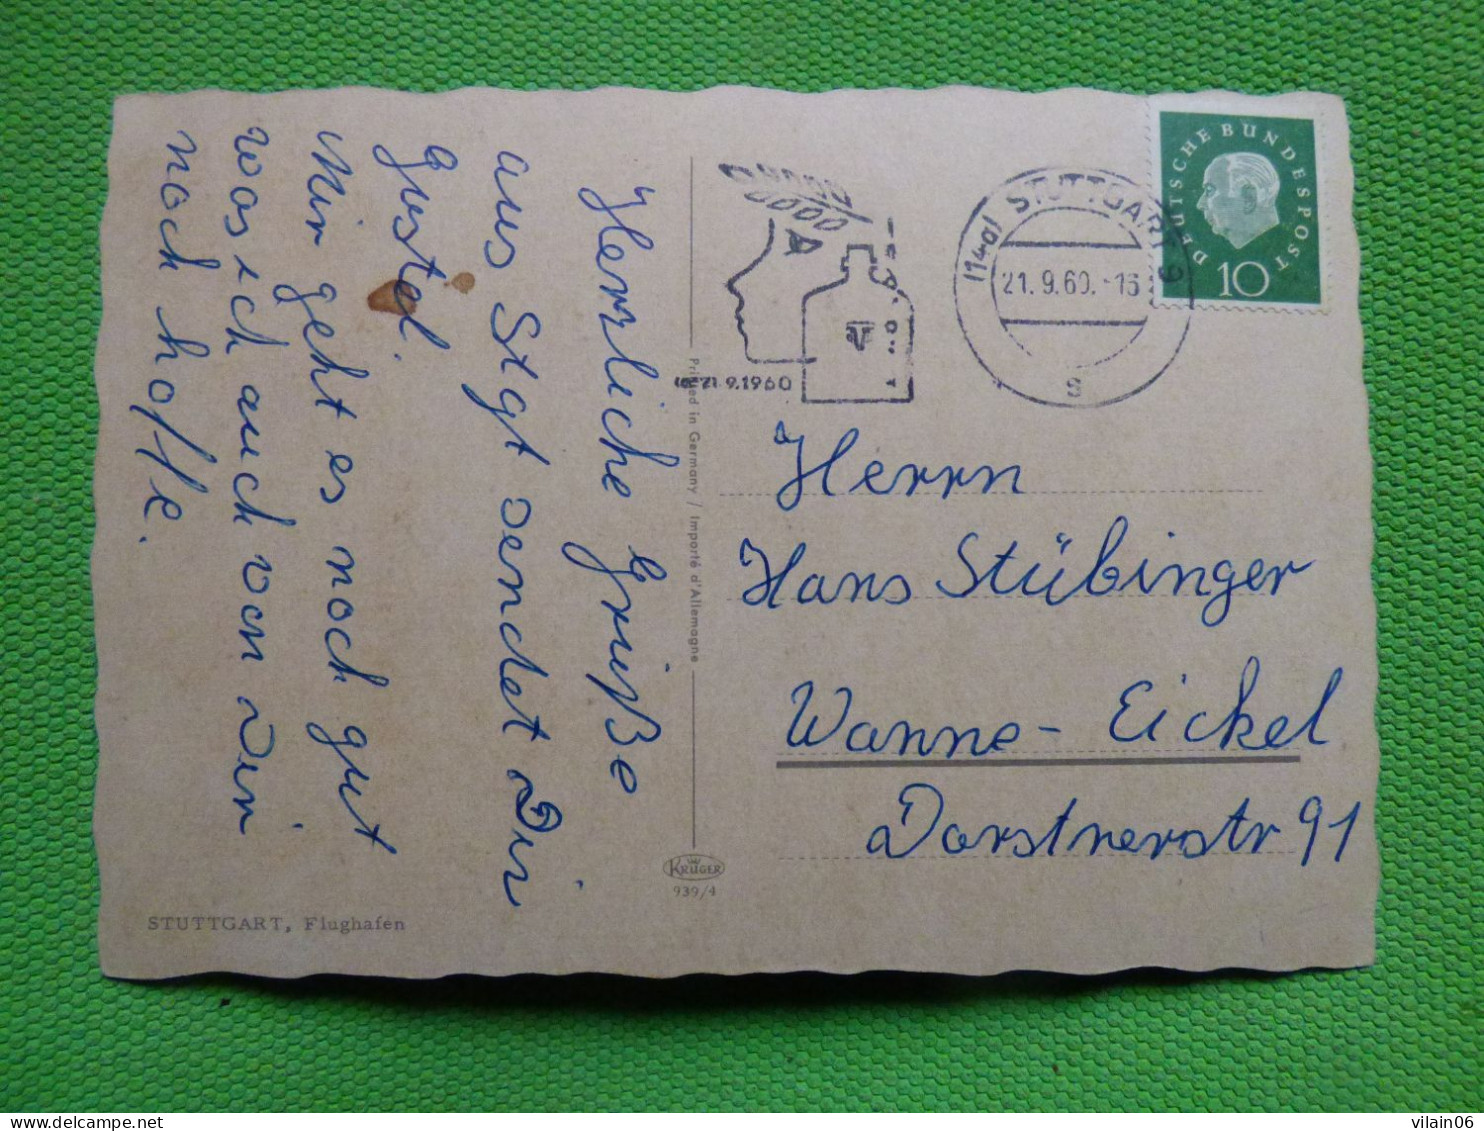 Herzliche Grüße
aus Stgt sendet Dir
Gustel.
Mir geht es noch gut
was ich auch von Dir
noch hoffe.
STUTTGART, Flughafen
Printed in Germany / Importé d'Allemagne
KRÜGER
939/4
9.1960
(14a) STUTTGART 9
21.9.60.-16
a
DEUTSCHE BUNDESPOST
10
Herrn
Hans Stübinger
Wanne-Eickel
Dorstnerstr 91
vilain06